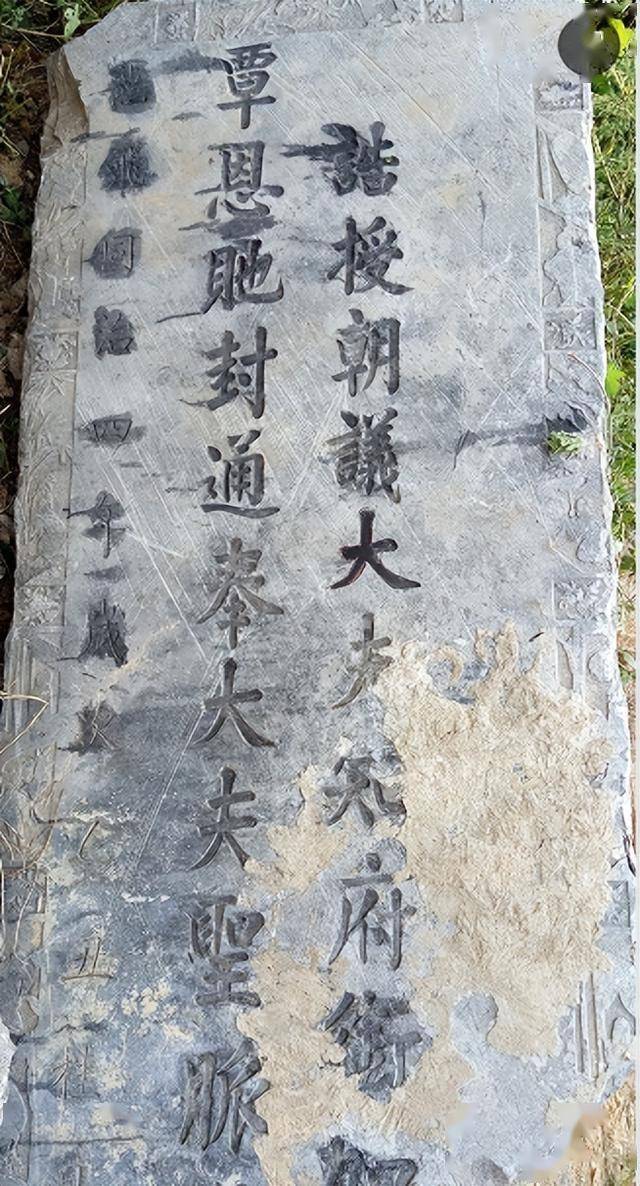 誥授朝議大夫知府銜
覃恩貤封通奉大夫聖脈
同治四年歲次乙丑